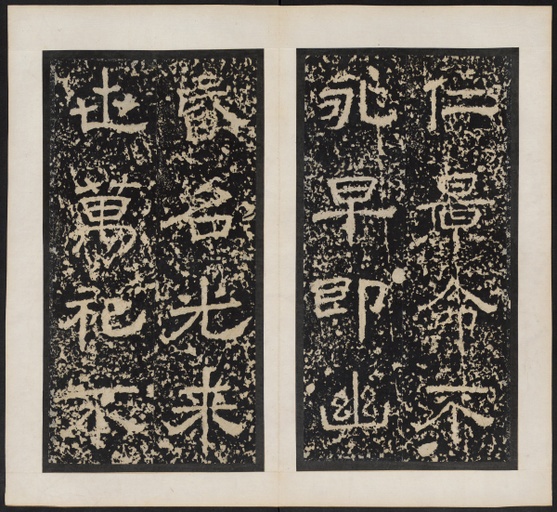 仁章命不
永早即幽
昬名光来
世萬祀不